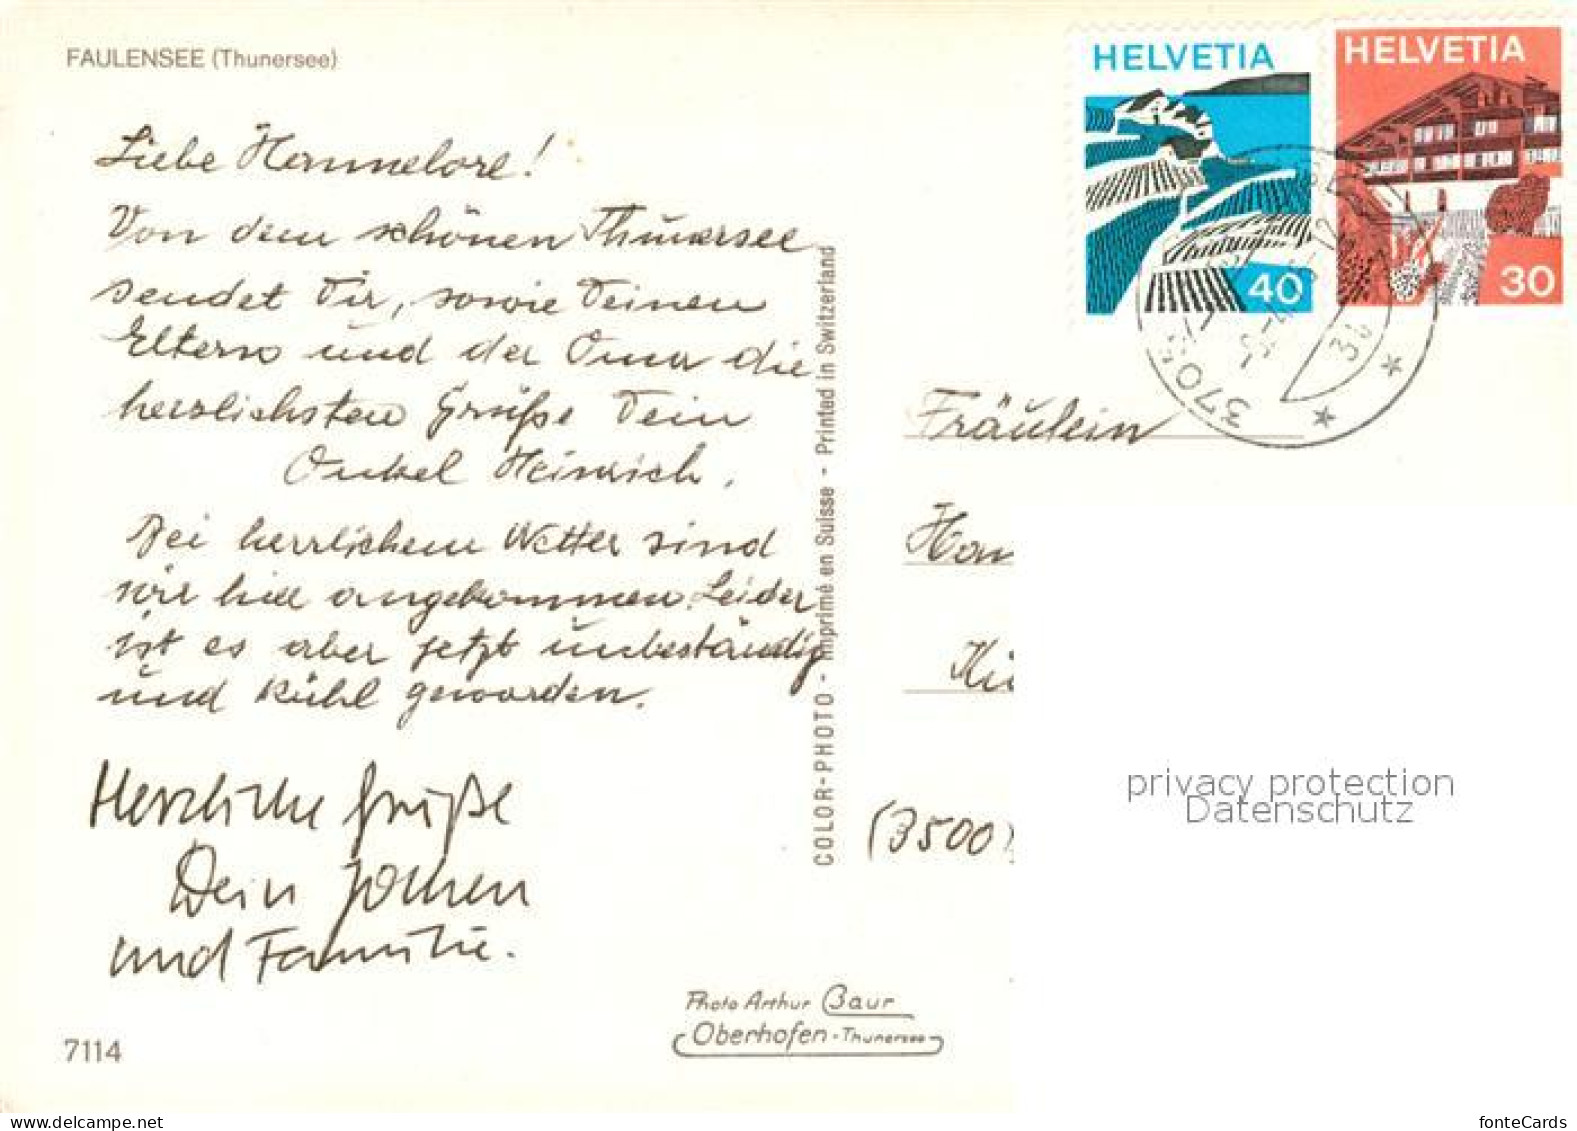 FAULENSEE (Thunersee)
HELVETIA
40
HELVETIA
30
Liebe Hannelore!
Von dem schönen Thunersee
sendet Dir, sowie Deinen
Eltern und der Oma die
herzlichsten Grüße Dein
Onkel Heinrich.
Bei herrlichem Wetter sind
wir hier angekommen. Leider
ist es aber jetzt unbeständig
und kühl geworden.
Herzliche Grüße
Dein Jochen
und Familie.
COLOR-PHOTO - Imprimé en Suisse - Printed in Switzerland
Fräulein
Han
(3500)
3705
privacy protection
Datenschutz
Photo Arthur Baur
Oberhofen-Thunersee
7114
www.delcampe.net
fonteCards